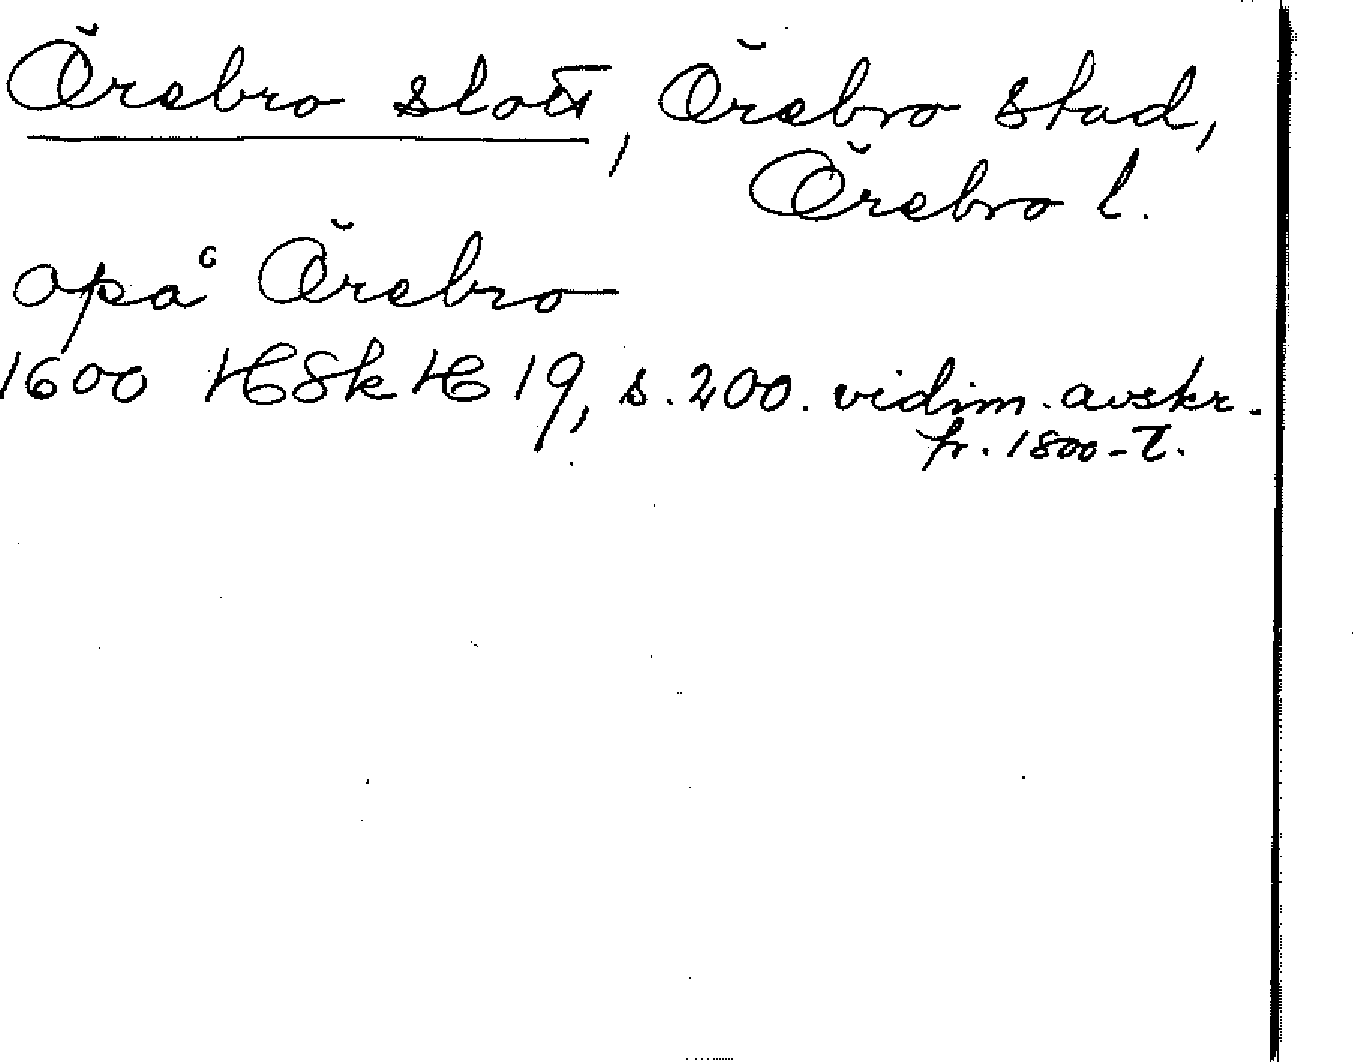 Örebro slott, Örebro stad,
Örebro l.
opå Örebro
1600 HSk H 19, s. 200. vidim. avskr.
fr. 1800-t.